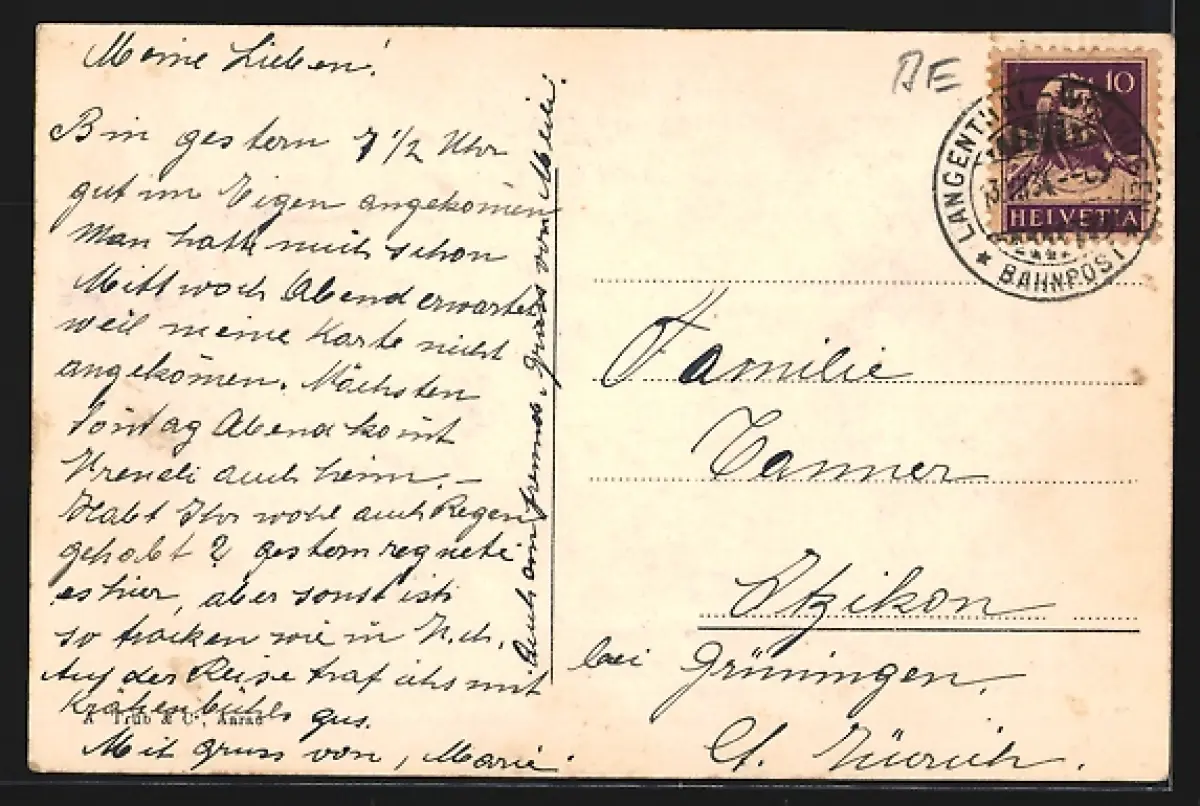 Meine Lieben!
Bin gestern 7 1/2 Uhr
gut im Eigen angekomen
Man hatte mich schon
Mittwoch Abend erwartet
weil meine Karte nicht
angekomen. Nächsten
Sontag Abend komt
Vrendi auch heim. –
Habt Ihr wohl auch Regen
gehabt? gestern regnete
es hier, aber sonst ists
so trocken wie in
Auf der Reise traf ichs mit
Krähenbühls gus.
Mit Gruss von, Marie.
Gruss von Meili.
A. Trüb & Cie, Aarau
BE
10
HELVETIA
LANGENTHAL-
BAHNPOST
Familie
Tanner
Itzikon
bei Grüningen,
Ct. Zürich.